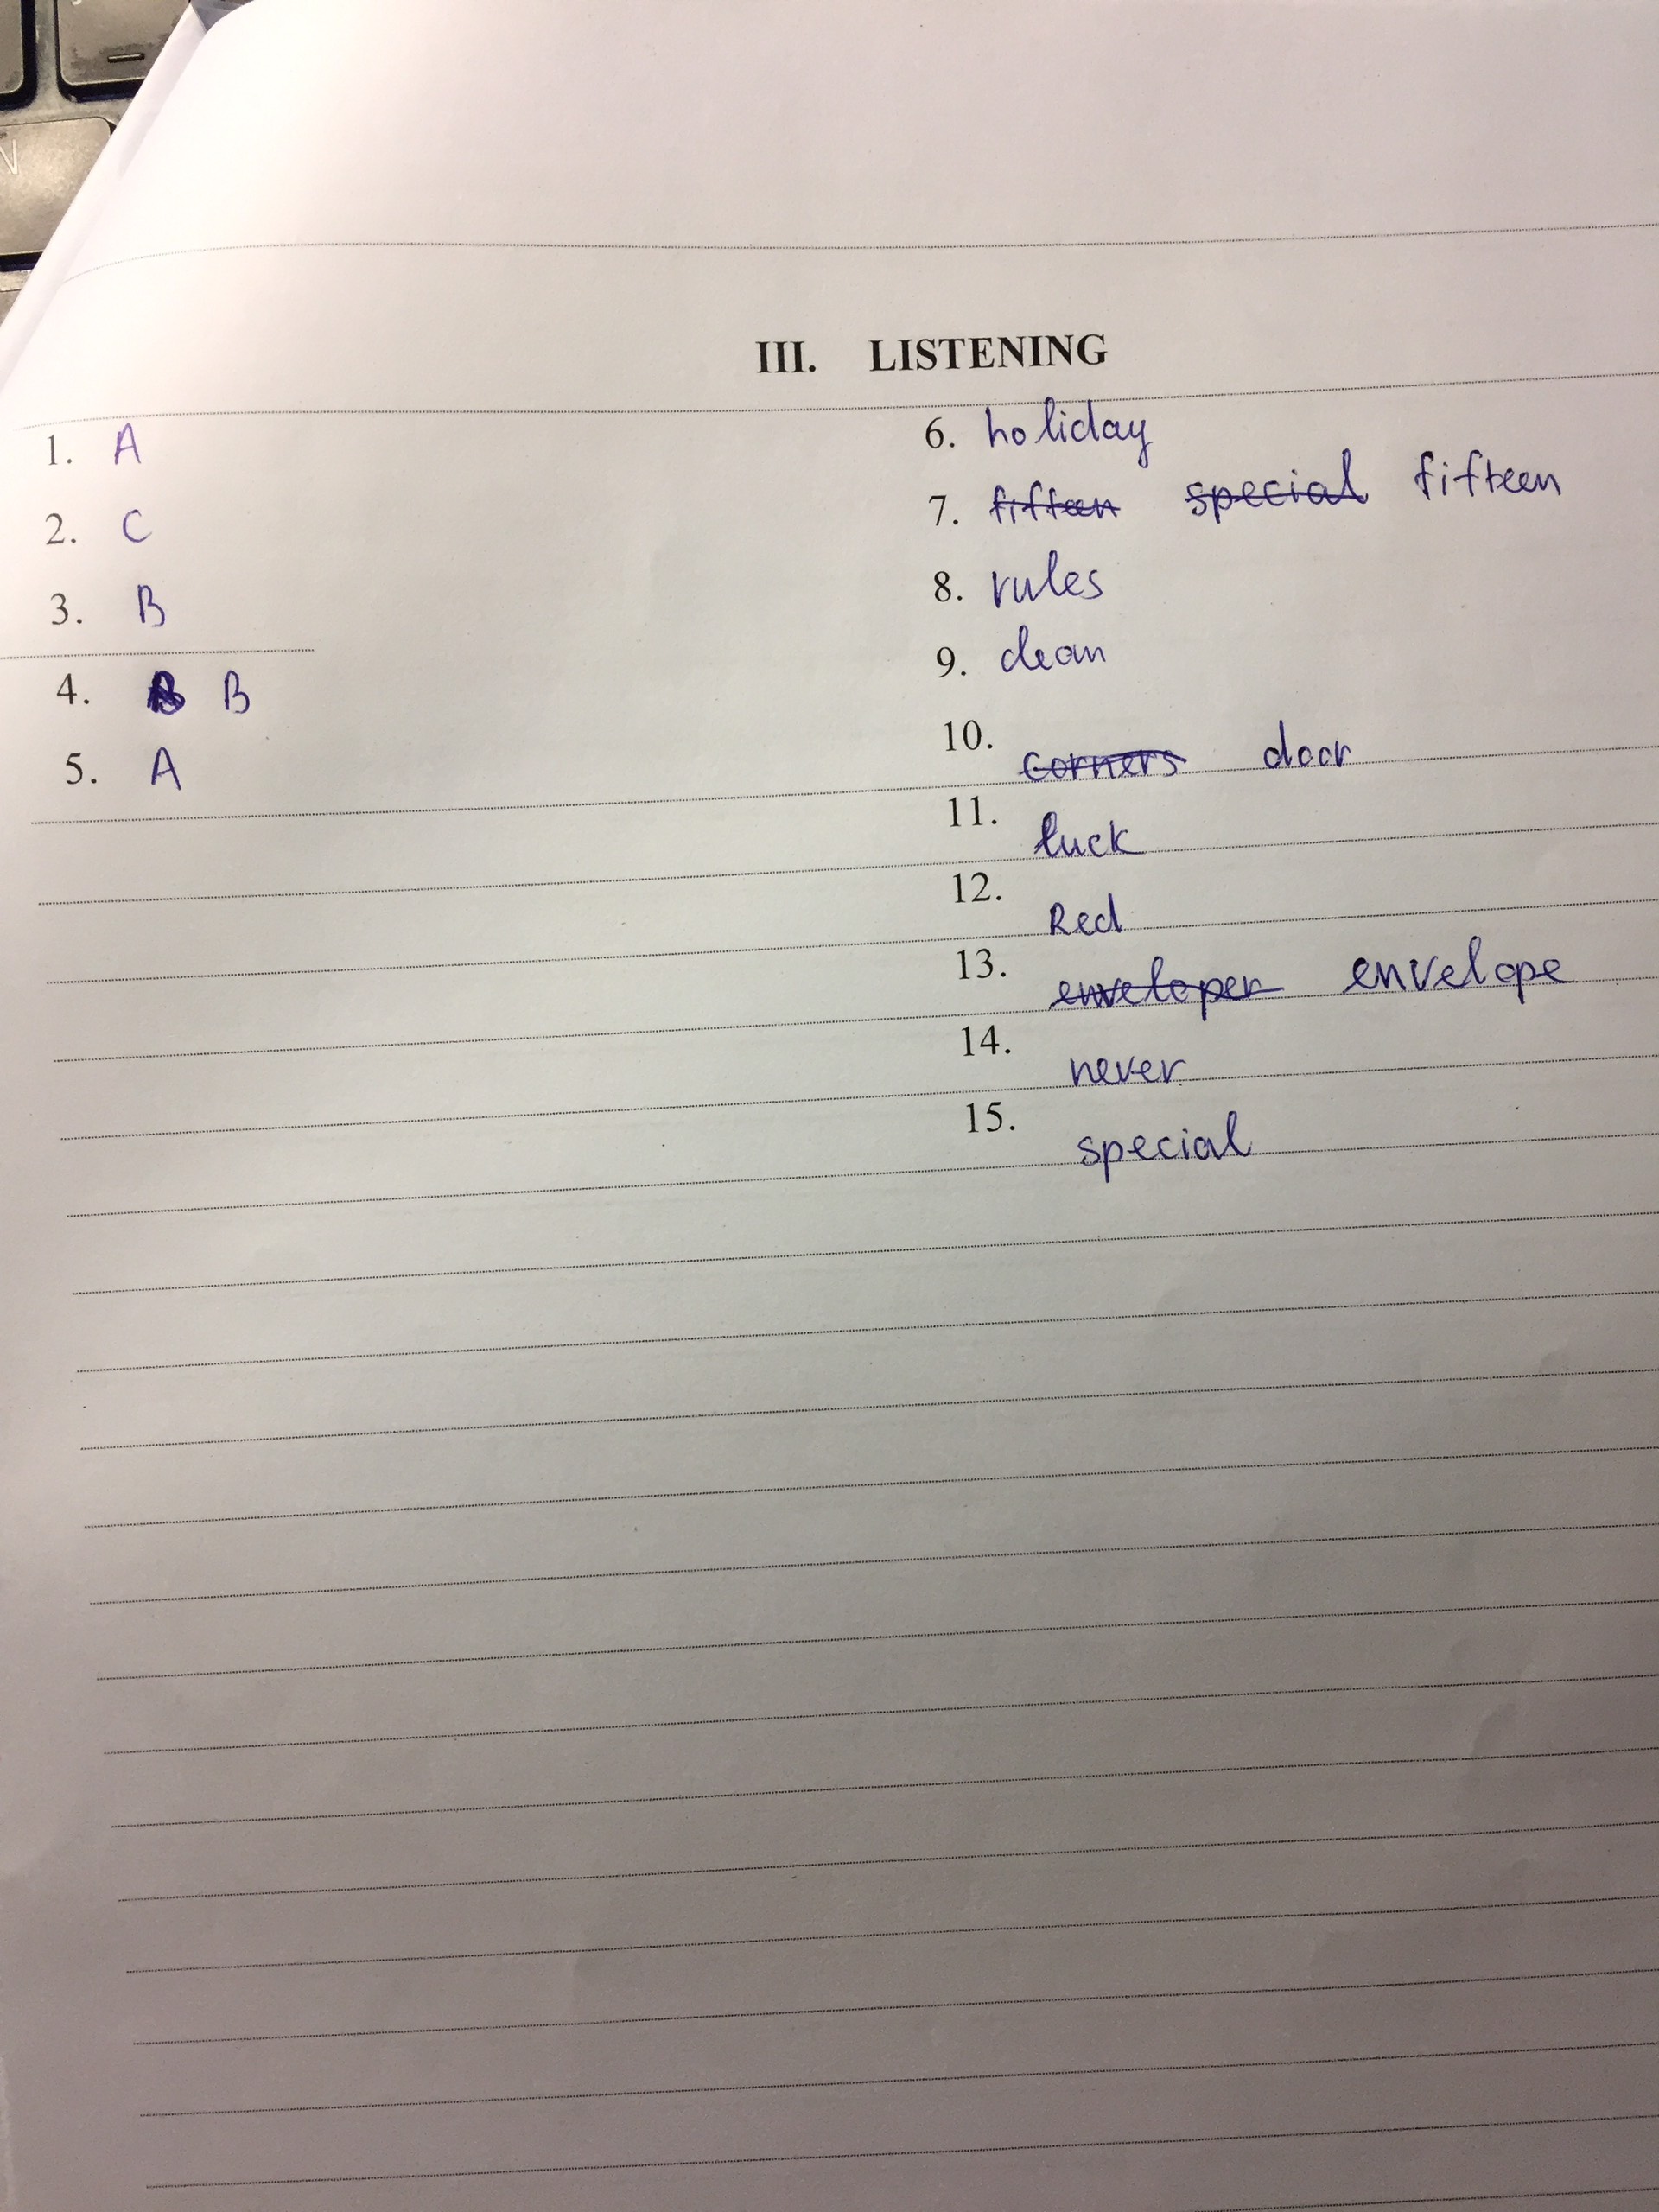 III. LISTENING
1. A
2. C
3. B
4. B
5. A
6. holiday
7. fifteen special fifteen
8. rules
9. clean
10. corners door
11. luck
12. Red
13. enveloper envelope
14. never
15. special
N